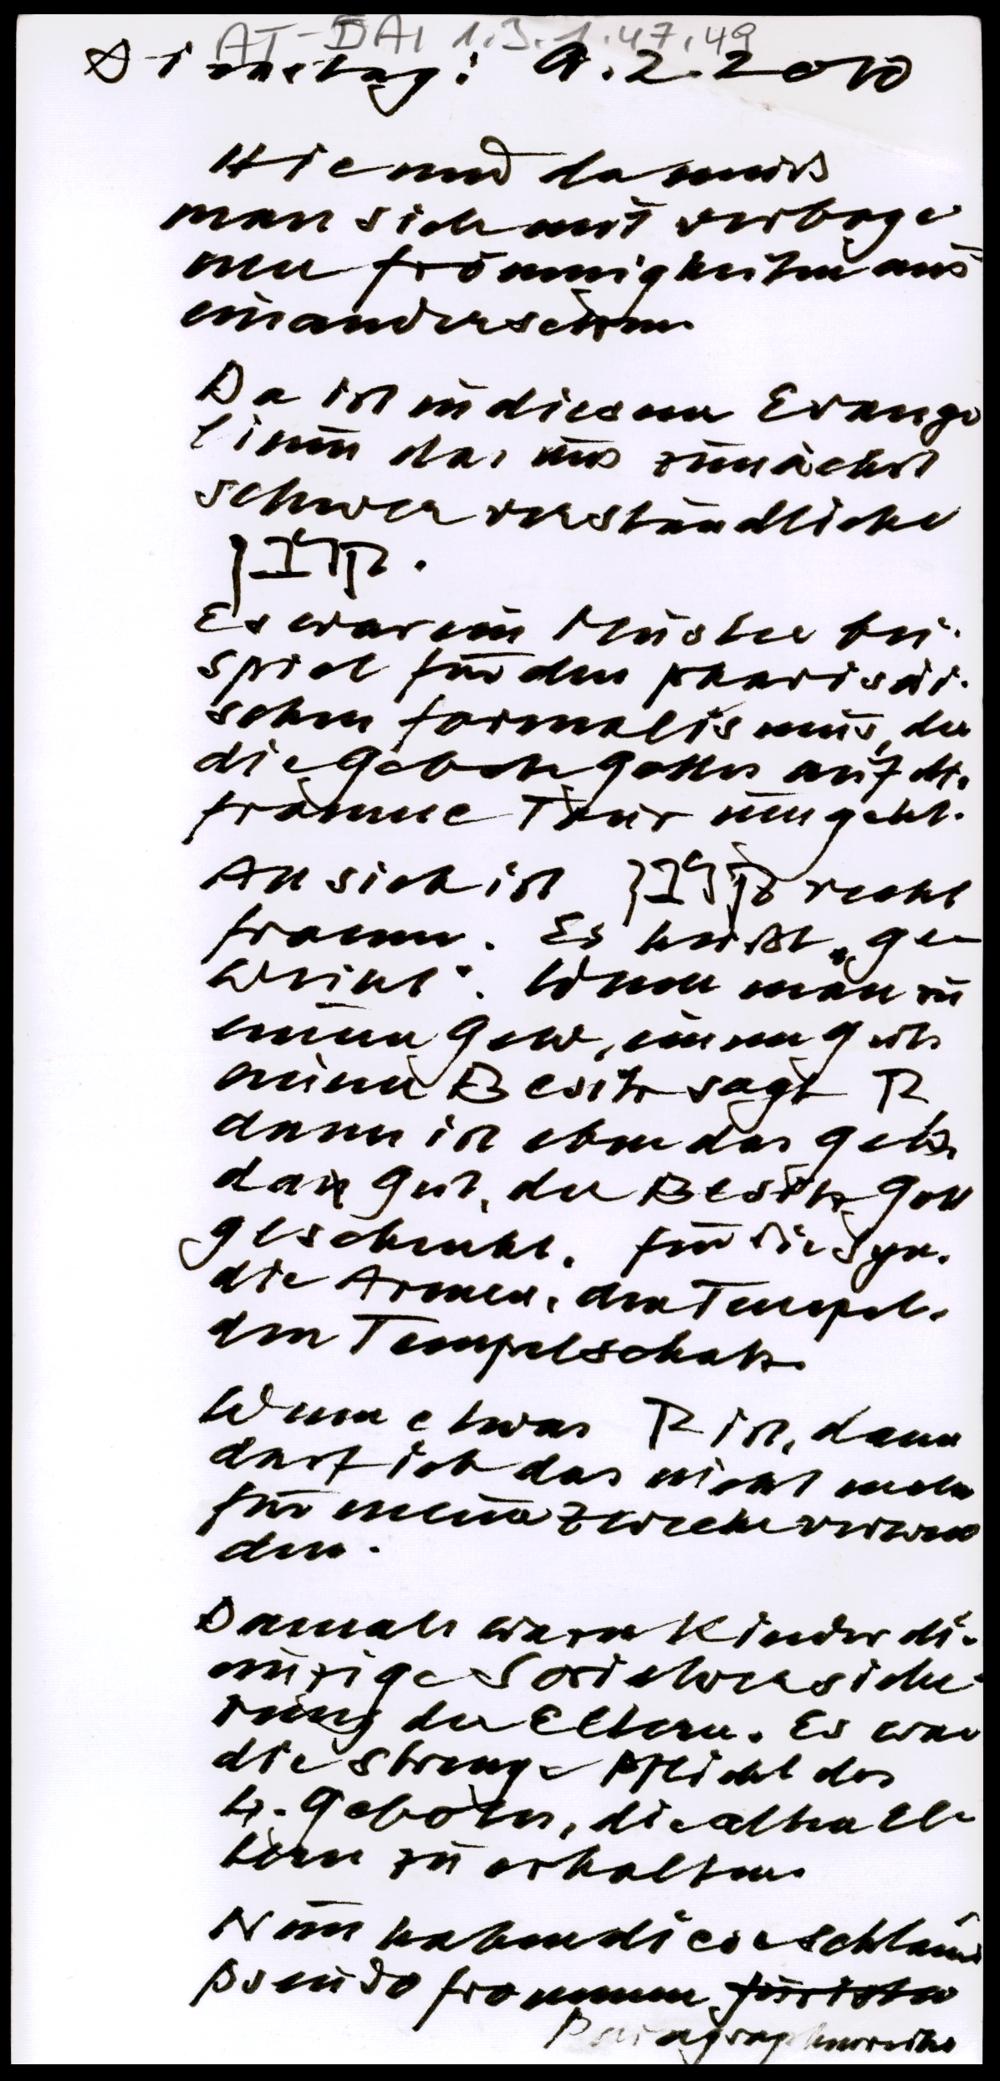 AT-DAI 1.3.1.47.49
Dienstag: 9.2.2010
Hie und da muß
man sich mit verboge
nen Frömmigkeiten aus
einandersetzen.
Da ist in diesem Evange
lium das uns zunächst
schwer verständliche
קרבן.
Es war ein Musterbei-
spiel für den pharisäi-
schen Formalismus, der
die Gebote Gottes auf die
fromme Tour umgeht.
An sich ist קרבן recht
fromm. Es heißt „ge-
weiht". Wenn man zu
einem Geld, einem Gut
einem Besitz sagt K
dann ist eben das Geld
das Gut, der Besitz Gott
geschenkt. Für die Syn.
die Armen, den Tempel.
den Tempelschatz.
Wenn etwas K ist, dann
darf ich das nicht mehr
für meine Zwecke verwen
den.
Damals waren Kinder die
einzige Sozialversiche-
rung der Eltern. Es war
die strenge Pflicht des
4. Gebotes, die alten El-
tern zu erhalten.
Nun haben diese schlauen
pseudofrommen Juristen
Paragraphenreiter